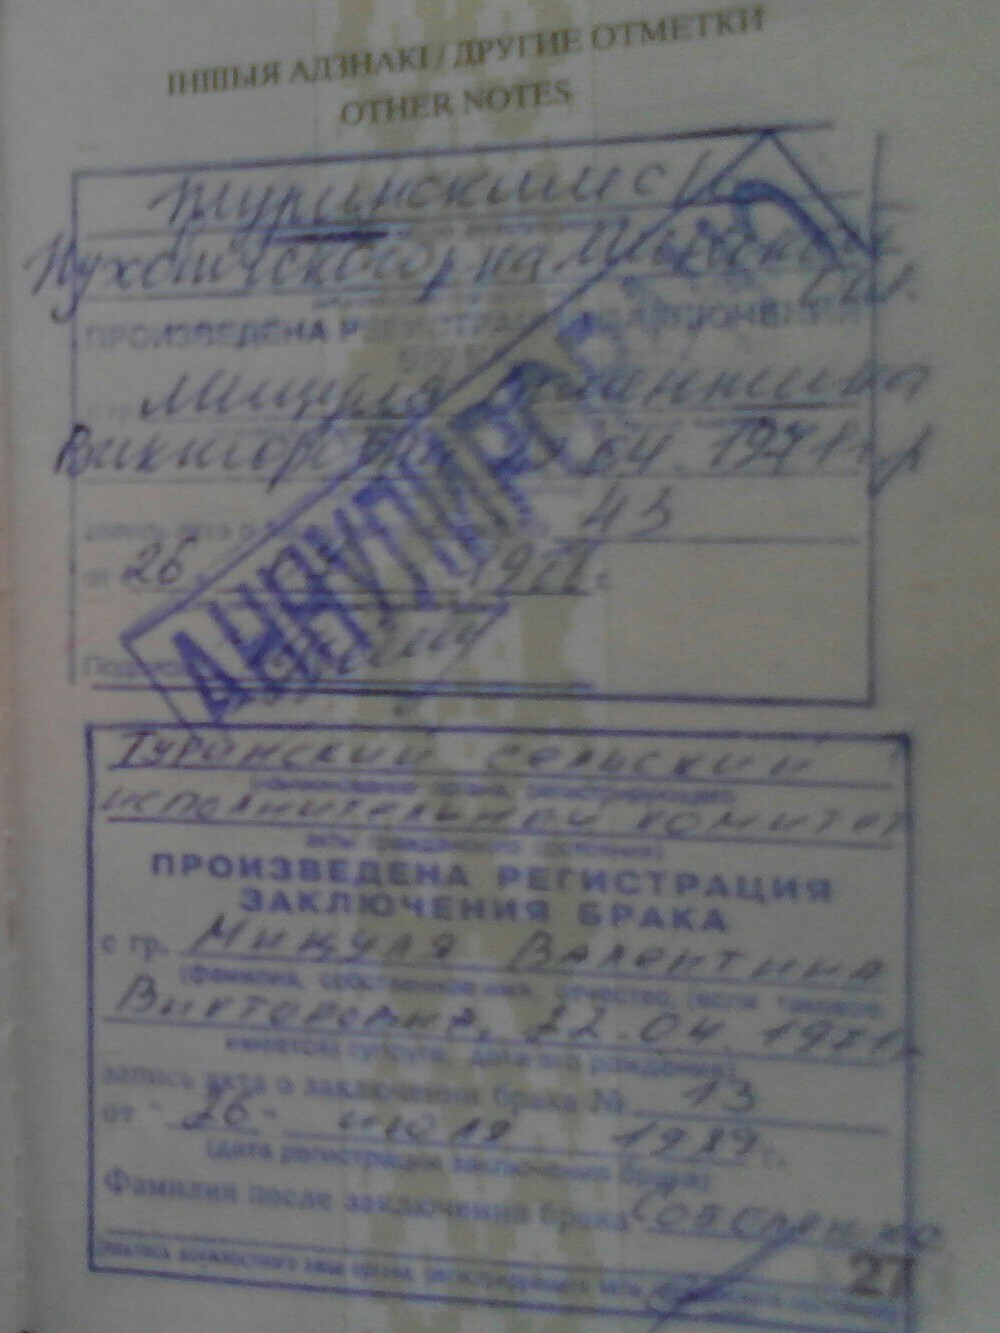 ІНШЫЯ АДЗНАКІ / ДРУГИЕ ОТМЕТКИ
OTHER NOTES
Туринским с/и
Пуховичского р-на Минской
обл.
ПРОИЗВЕДЕНА РЕГИСТРАЦИЯ ЗАКЛЮЧЕНИЯ
с гр. Мицуля Валентина
Викторовна 22.04.1971 г.р
43
от 26
АННУЛИРОВАНО
Подпись
Туринский сельский
(наименование органа, регистрирующего
исполнительный комитет
акты гражданского состояния)
ПРОИЗВЕДЕНА РЕГИСТРАЦИЯ
ЗАКЛЮЧЕНИЯ БРАКА
с гр. Мицуля Валентина
(фамилия, собственное имя, отчество (если таковое
Викторовна, 22.04.1971
имеется) супруга, дата его рождения)
запись акта о заключении брака № 13
от "26" июля 1989 г.
(дата регистрации заключения брака)
Фамилия после заключения брака
(подпись должностного лица органа, регистрирующего акты гражданского состояния)
27